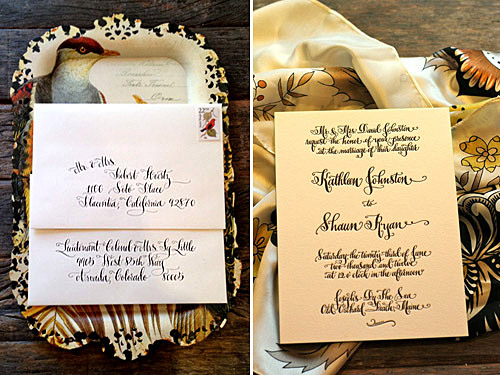 Mr & Mrs
Hubert Hersty
1100 Soto Place
Placentia, California 42870
Lieutenant Colonel & Mrs Ty Little
9905 West 85th Way
Arvada, Colorado 80005
Mr & Mrs David Johnston
request the honor of your presence
at the marriage of their daughter
Kathlan Johnston
to
Shaun Ryan
Saturday the twenty third of June
two thousand and twelve
at 12 o'clock in the afternoon
Josephs By The Sea
Old Orchard Beach, Maine